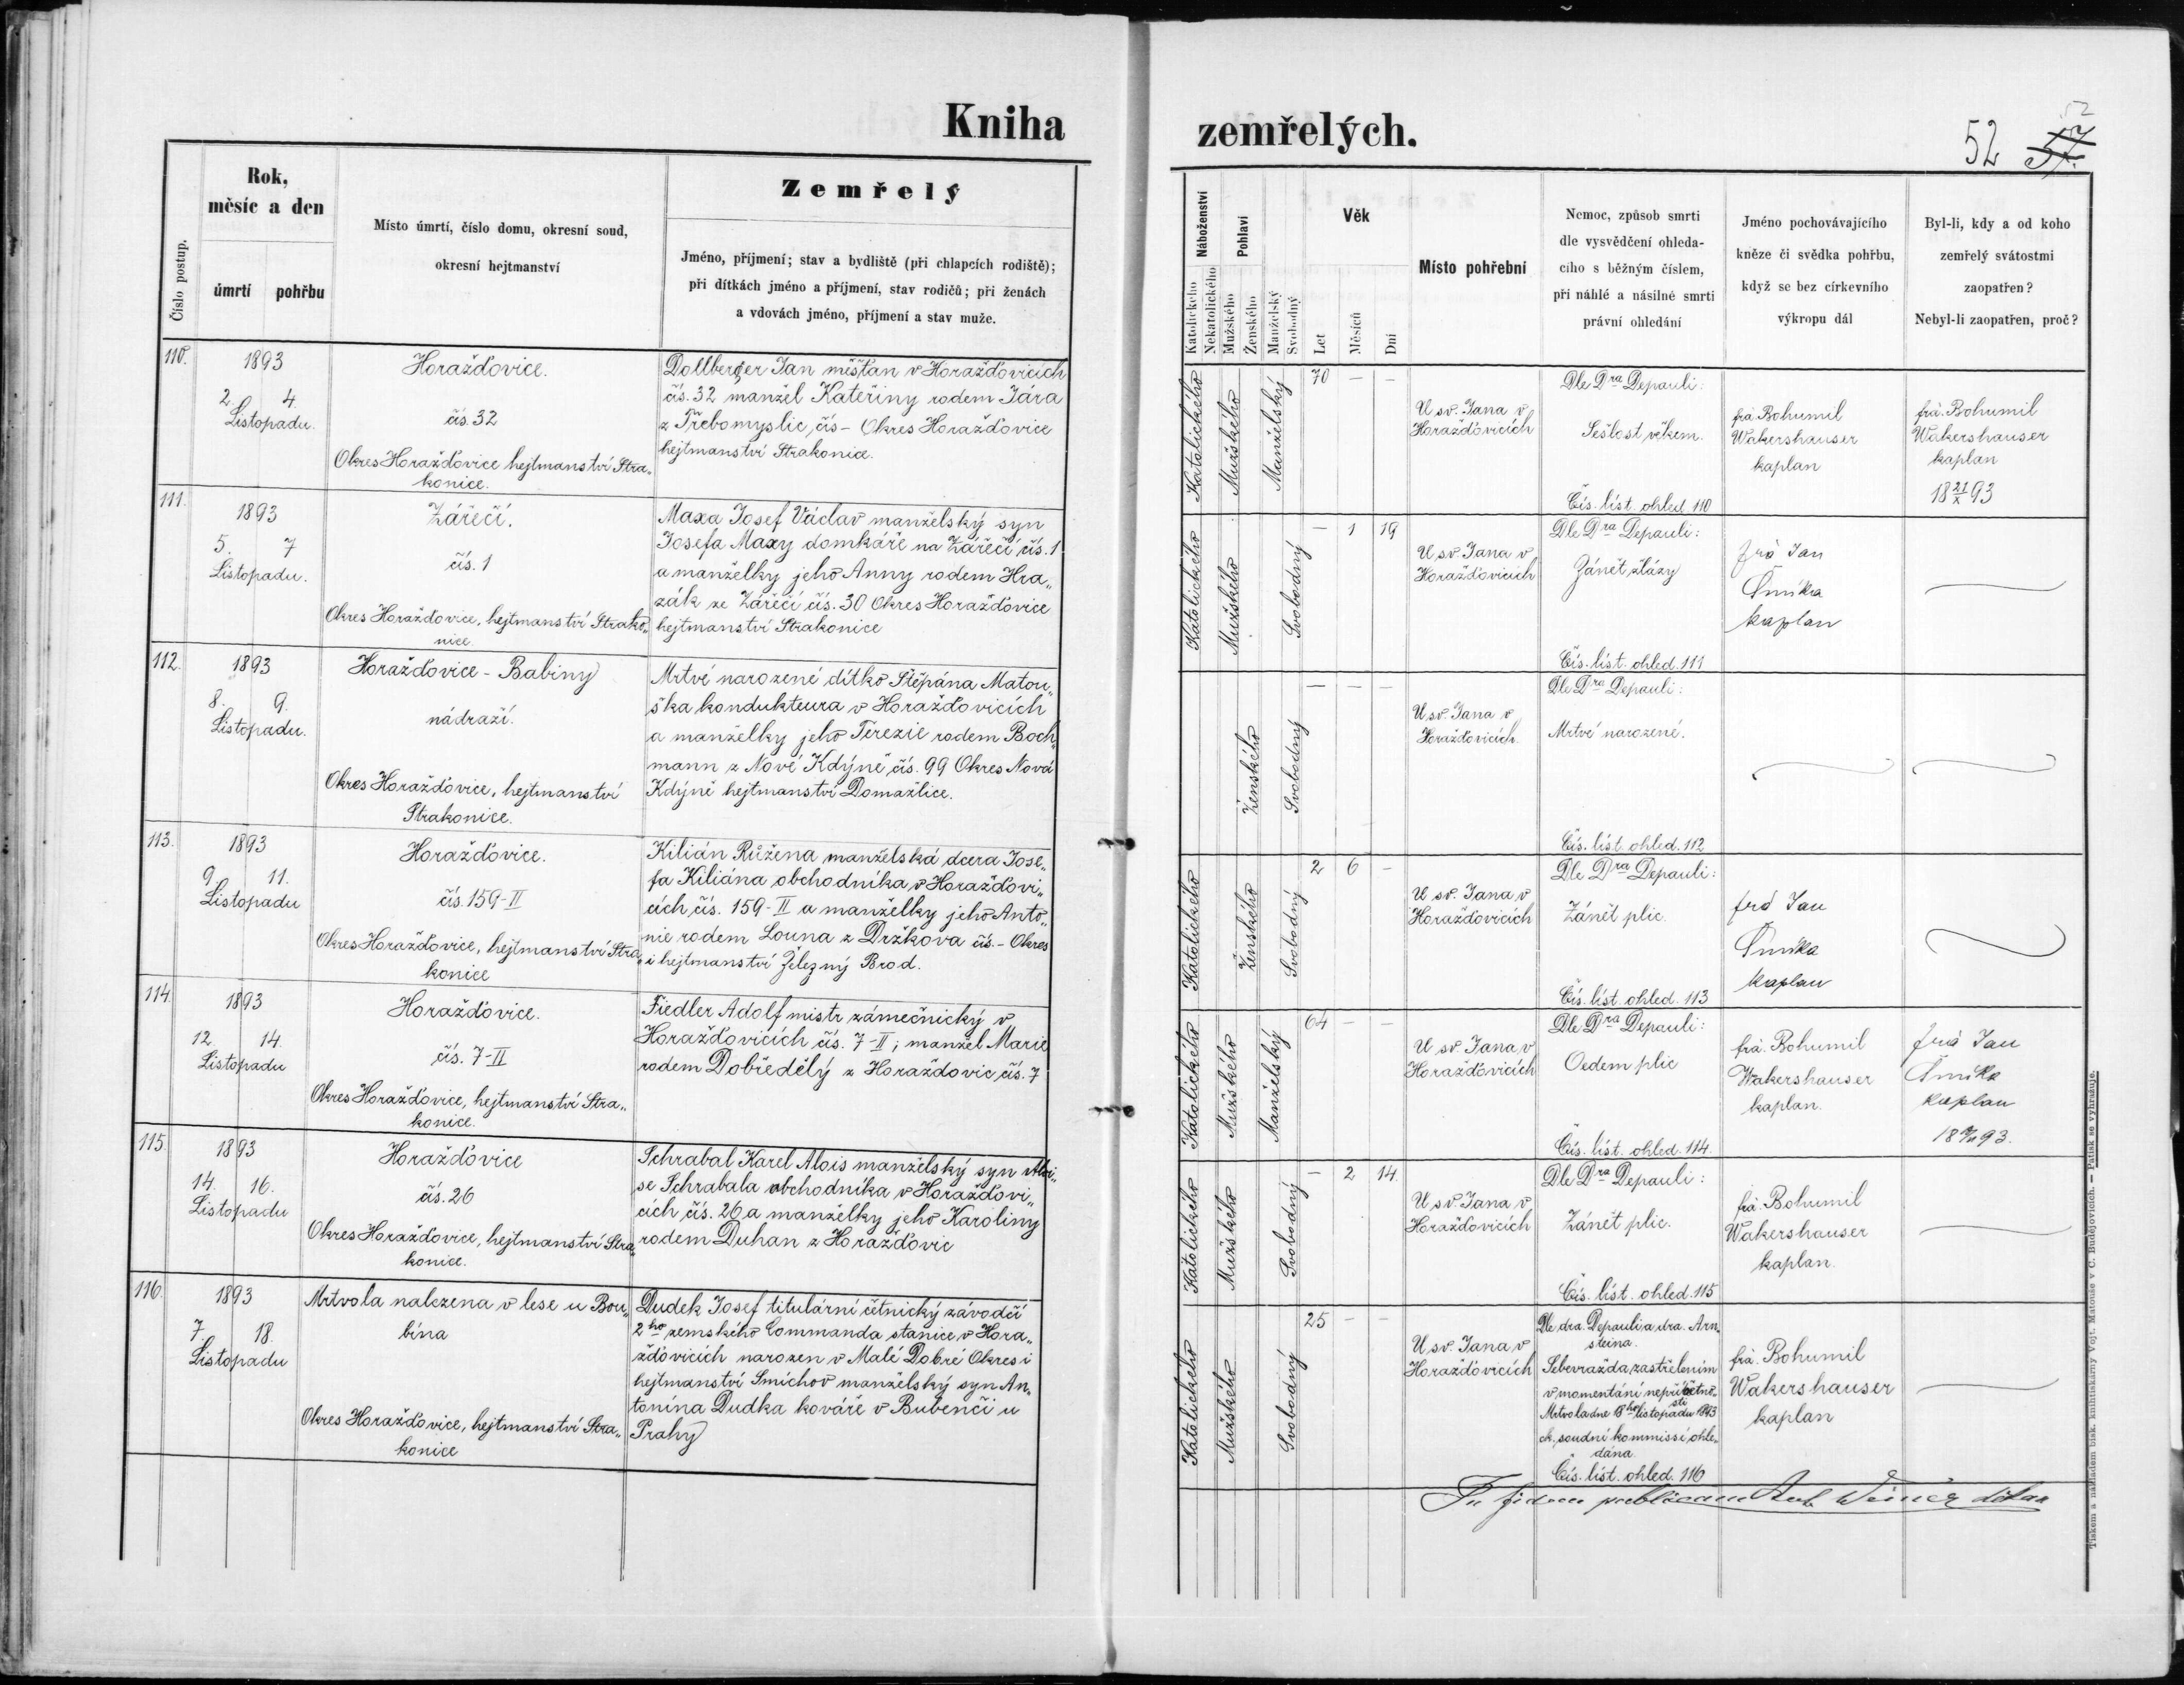 Kniha
zemřelých.
52
52
57.
Číslo postup.
Rok,
měsíc a den
úmrtí pohřbu
Místo úmrtí, číslo domu, okresní soud,
okresní hejtmanství
Zemřelý
Jméno, příjmení; stav a bydliště (při chlapcích rodiště);
při dítkách jméno a příjmení, stav rodičů; při ženách
a vdovách jméno, příjmení a stav muže.
Náboženství
Katolického
Nekatolického
Pohlaví
Mužského
Ženského
Manželský
Svobodný
Věk
Let
Měsíců
Dní
Místo pohřební
Nemoc, způsob smrti
dle vysvědčení ohleda-
cího s běžným číslem,
při náhlé a násilné smrti
právní ohledání
Jméno pochovávajícího
kněze či svědka pohřbu,
když se bez církevního
výkropu dál
Byl-li, kdy a od koho
zemřelý svátostmi
zaopatřen?
Nebyl-li zaopatřen, proč?
110.
1893
2. 4.
Listopadu.
Horažďovice.
čís. 32
Okres Horažďovice hejtmanství Stra„
konice.
Dollberger Jan měšťan v Horažďovicích
čís. 32 manžel Kateřiny rodem Jára
z Třebomyslic, čís – Okres Horažďovice
hejtmanství Strakonice.
Katolického
Mužského
Manželský
70 – –
U sv. Jana v
Horažďovicích
Dle Dra Depauli:
Sešlost věkem.
Čís. list. ohled. 110
frá Bohumil
Wakershauser
kaplan
frá. Bohumil
Wakershauser
kaplan
18 21/X 93
111.
1893
5. 7
Listopadu.
Zářečí.
čís. 1
Okres Horažďovice, hejtmanství Strako„
nice.
Maxa Josef Václav manželský syn
Josefa Maxy domkáře na Zářečí čís. 1
a manželky jeho Anny rodem Hra„
zák ze Zářečí čís. 30 Okres Horažďovice
hejtmanství Strakonice
Katolického
Mužského
Svobodný
– 1 19
U sv. Jana v
Horažďovicích
Dle Dra Depauli:
Zánět žlázy
Čís. líst. ohled. 111
frá Jan
Šmika
kaplan
112.
1893
8. 9.
Listopadu.
Horažďovice - Babiny
nádraží.
Okres Horažďovice, hejtmanství
Strakonice.
Mrtvé narozené dítko Štěpána Matou„
ška kondukteura v Horažďovicích
a manželky jeho Terezie rodem Boch„
mann z Nové Kdýně čís. 99 Okres Nová
Kdýně hejtmanství Domažlice.
Ženského
Svobodný
– – –
U sv. Jana v
Horažďovicích.
Dle Dra Depauli:
Mrtvé narozené.
Čís. líst. ohled. 112
113.
1893
9 11.
Listopadu
Horažďovice.
čís. 159-II
Okres Horažďovice, hejtmanství Stra„
konice
Kilián Růžena manželská dcera Jose„
fa Kiliána obchodníka v Horažďovi„
cích, čís. 159-II a manželky jeho Anto„
nie rodem Louna z Držkova čís. – Okres
i hejtmanství Železný Brod.
Katolického
Ženského
Svobodný
2 6 –
U sv. Jana v
Horažďovicích
Dle Dra Depauli:
Zánět plic.
Čís. líst. ohled. 113
frá Jan
Šmika
kaplan
114.
1893
12. 14.
Listopadu
Horažďovice.
čís. 7-II
Okres Horažďovice, hejtmanství Stra„
konice.
Fiedler Adolf mistr zámečnický v
Horažďovicích čís. 7-II; manžel Marie
rodem Dobředělý z Horažďovic, čís. 7
Katolického
Mužského
Manželský
64 – –
U sv. Jana v
Horažďovicích
Dle Dra Depauli:
Oedem plic
Čís. líst. ohled. 114.
frá. Bohumil
Wakershauser
kaplan.
frá Jan
Šmika
kaplan
115.
1893
14. 16.
Listopadu
Horažďovice
čís. 26
Okres Horažďovice, hejtmanství Stra„
konice.
Schrabal Karel Alois manželský syn Aloi„
se Schrabala obchodníka v Horažďovi„
cích čís. 26 a manželky jeho Karoliny
rodem Duhan z Horažďovic
Katolického
Mužského
Svobodný
– 2 14.
U sv. Jana v
Horažďovicích
Dle Dra Depauli:
Zánět plic.
Čís. líst. ohled. 115
frá. Bohumil
Wakershauser
kaplan.
116.
1893
7. 18.
Listopadu
Mrtvola nalezena v lese u Bou„
bína
Okres Horažďovice, hejtmanství Stra„
konice
Dudek Josef titulární četnický závodčí
2ho zemského Commanda stanice v Hora„
žďovicích narozen v Malé Dobré Okres i
hejtmanství Smíchov manželský syn An„
tonína Dudka kováře v Bubenči u
Prahy
Katolického
Mužského
Svobodný
25 – –
U sv. Jana v
Horažďovicích
Dle dra. Depauli a dra. Arn„
steina.
Sebevražda zastřelením
v momentání nepříčetno„
sti
Mrtvola dne 18ho listopadu 1893
ck. soudní kommissí ohle„
dána.
Čís. líst. ohled. 116
frá. Bohumil
Wakershauser
kaplan
In fidem publicam Ant. Weiner děkan
Tiskem a nákladem bisk. knihtiskárny Vojt. Matouše v Č. Budějovicích. — Patisk se vyhražuje.